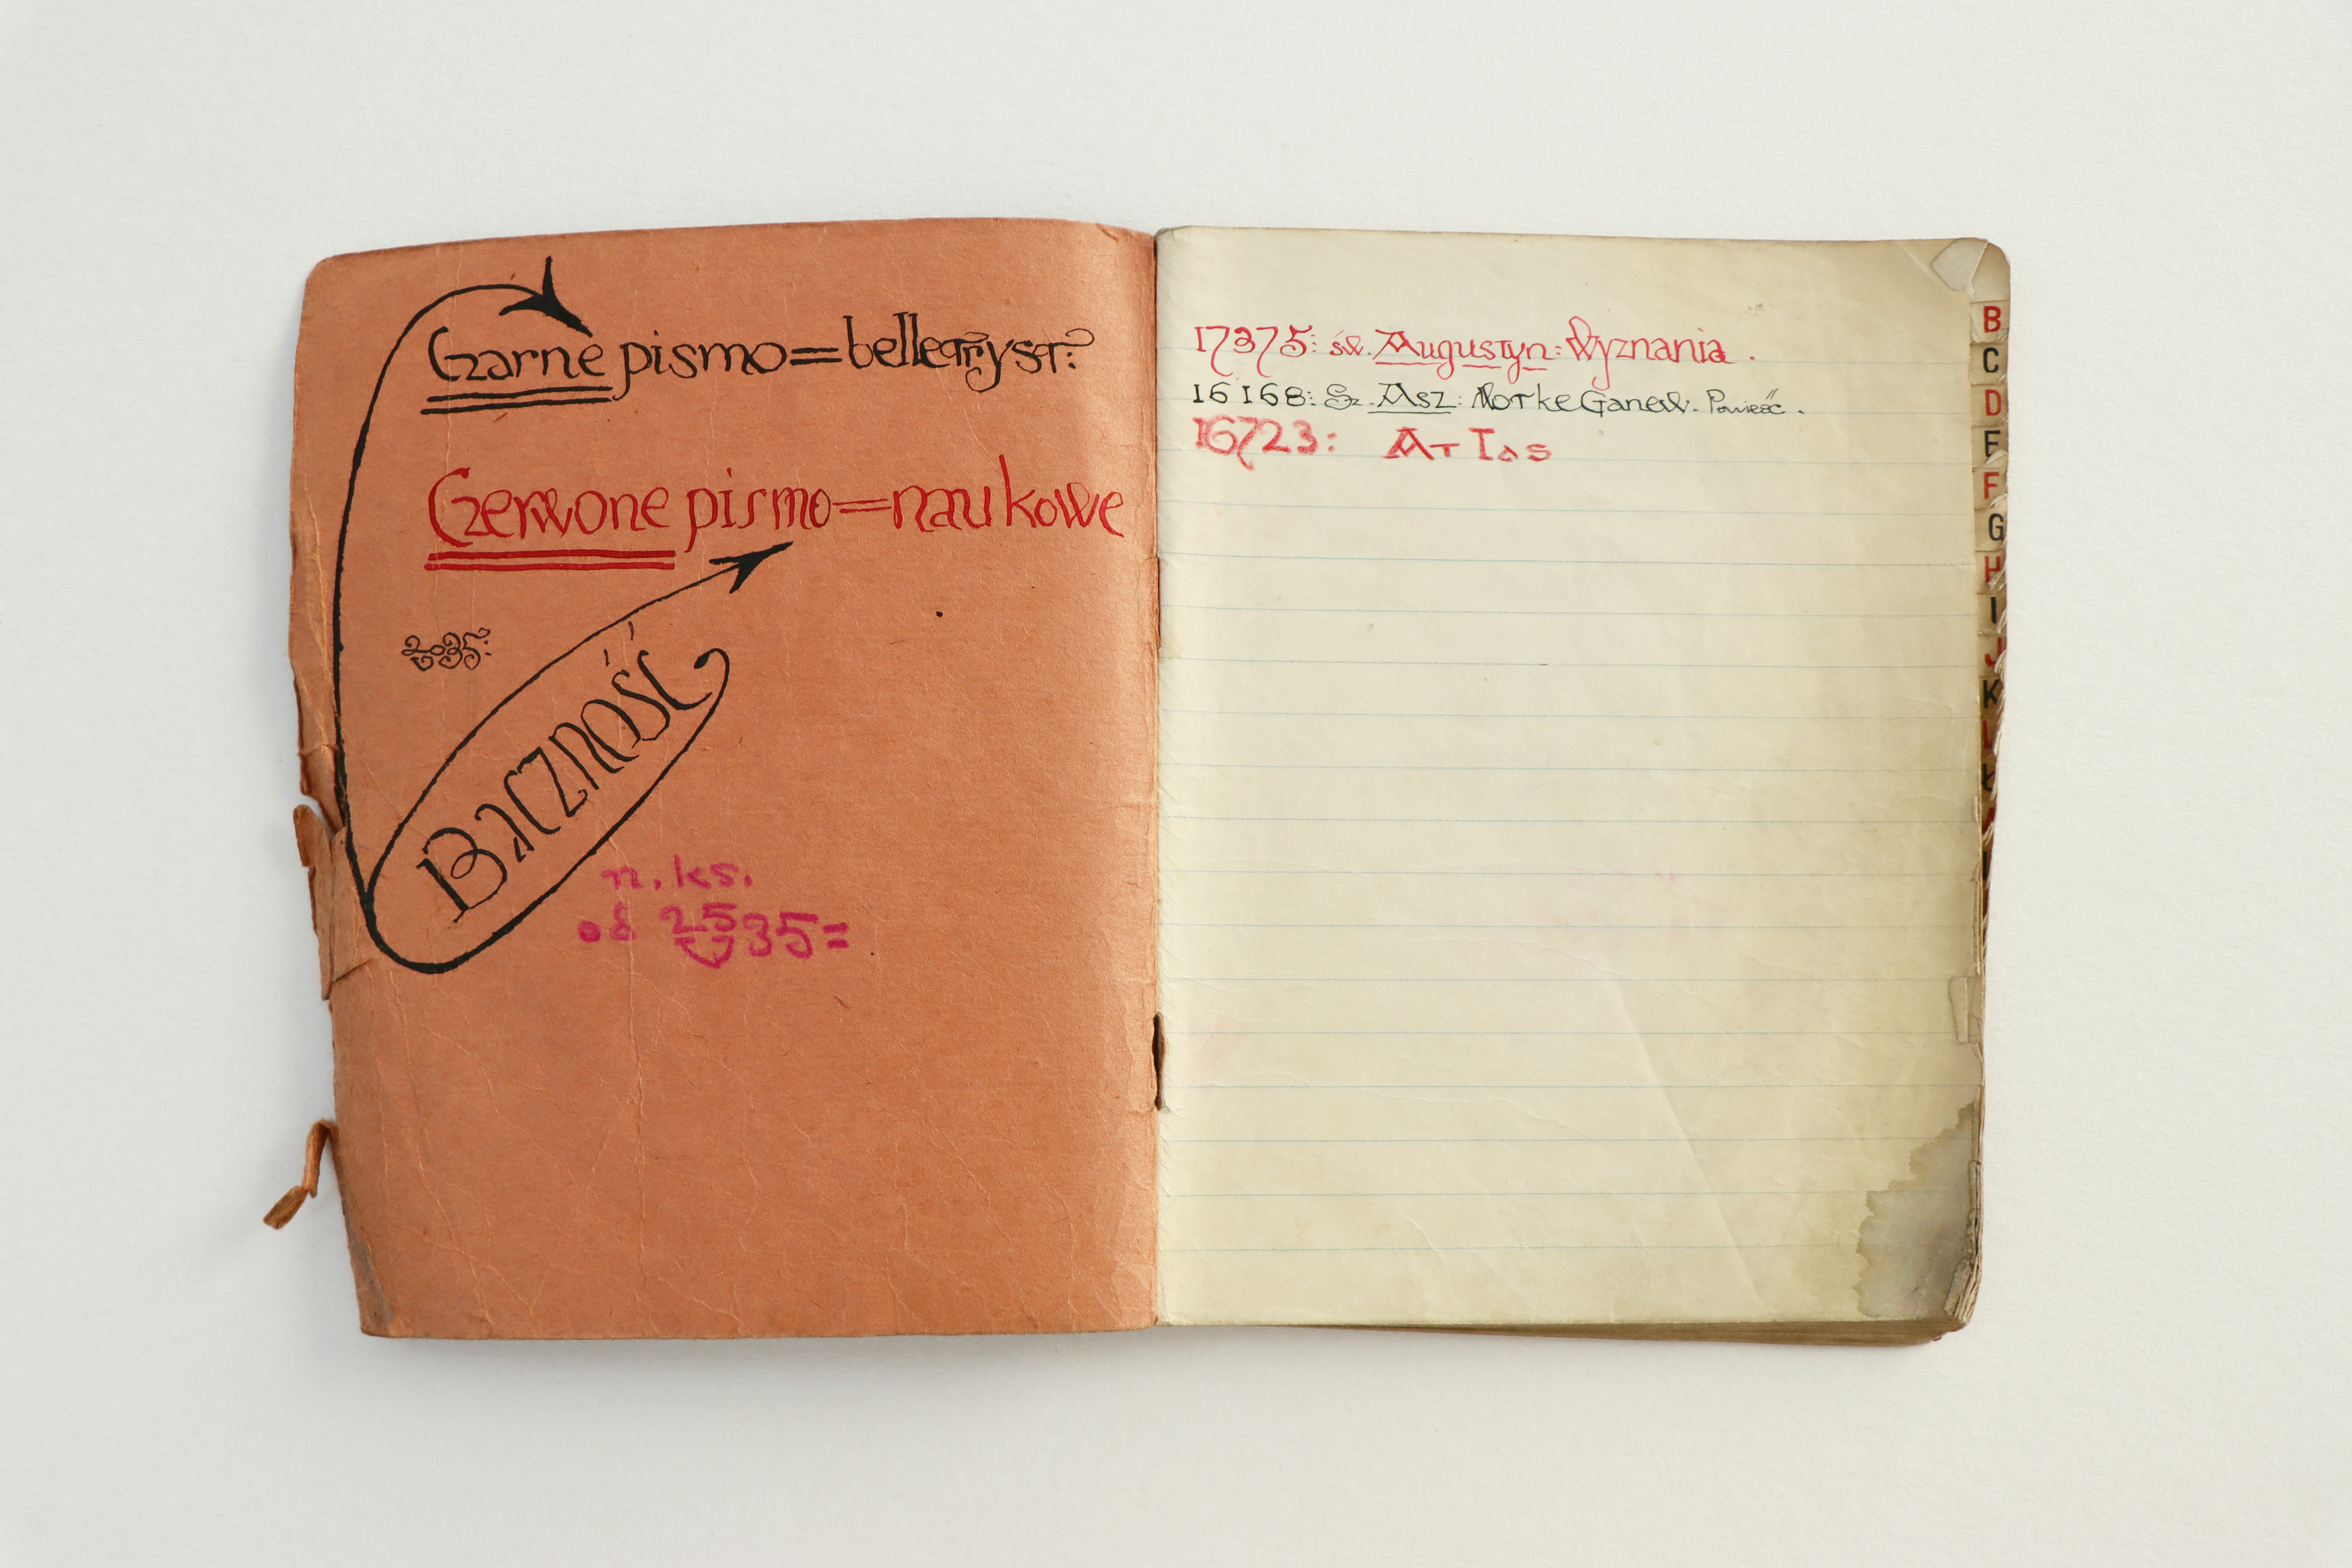 Czarne pismo=belletryst:
Czerwone pismo=naukowe
BACZNOŚĆ
n. ks.
od 2535=
17375: św. Augustyn: Wyznania.
16168: Sz. Asz: Motke Ganew. Powieść.
16723: Atlas
B
C
D
E
F
G
H
I
J
K
L